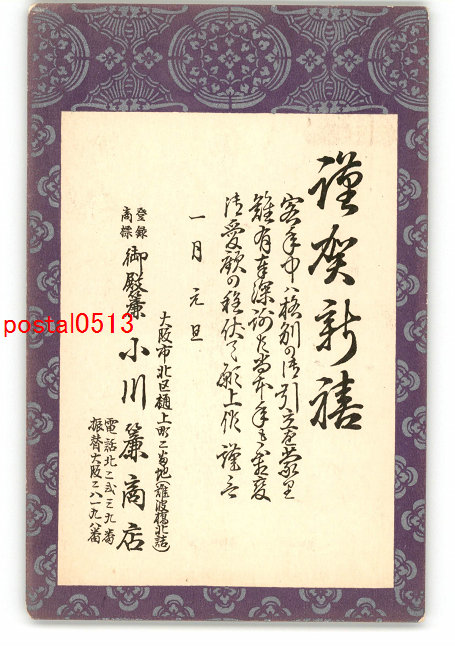 謹賀新禧
客年中ハ格別の御引立を蒙り
難有奉深謝候尚本年も不相変
御愛顧の程伏て願上候 謹言
一月元旦
大阪市北区樋上町二番地(難波橋北詰)
登録
商標
御殿簾 小川簾商店
電話北二弐三九番
振替大阪二八一九八番
postal0513